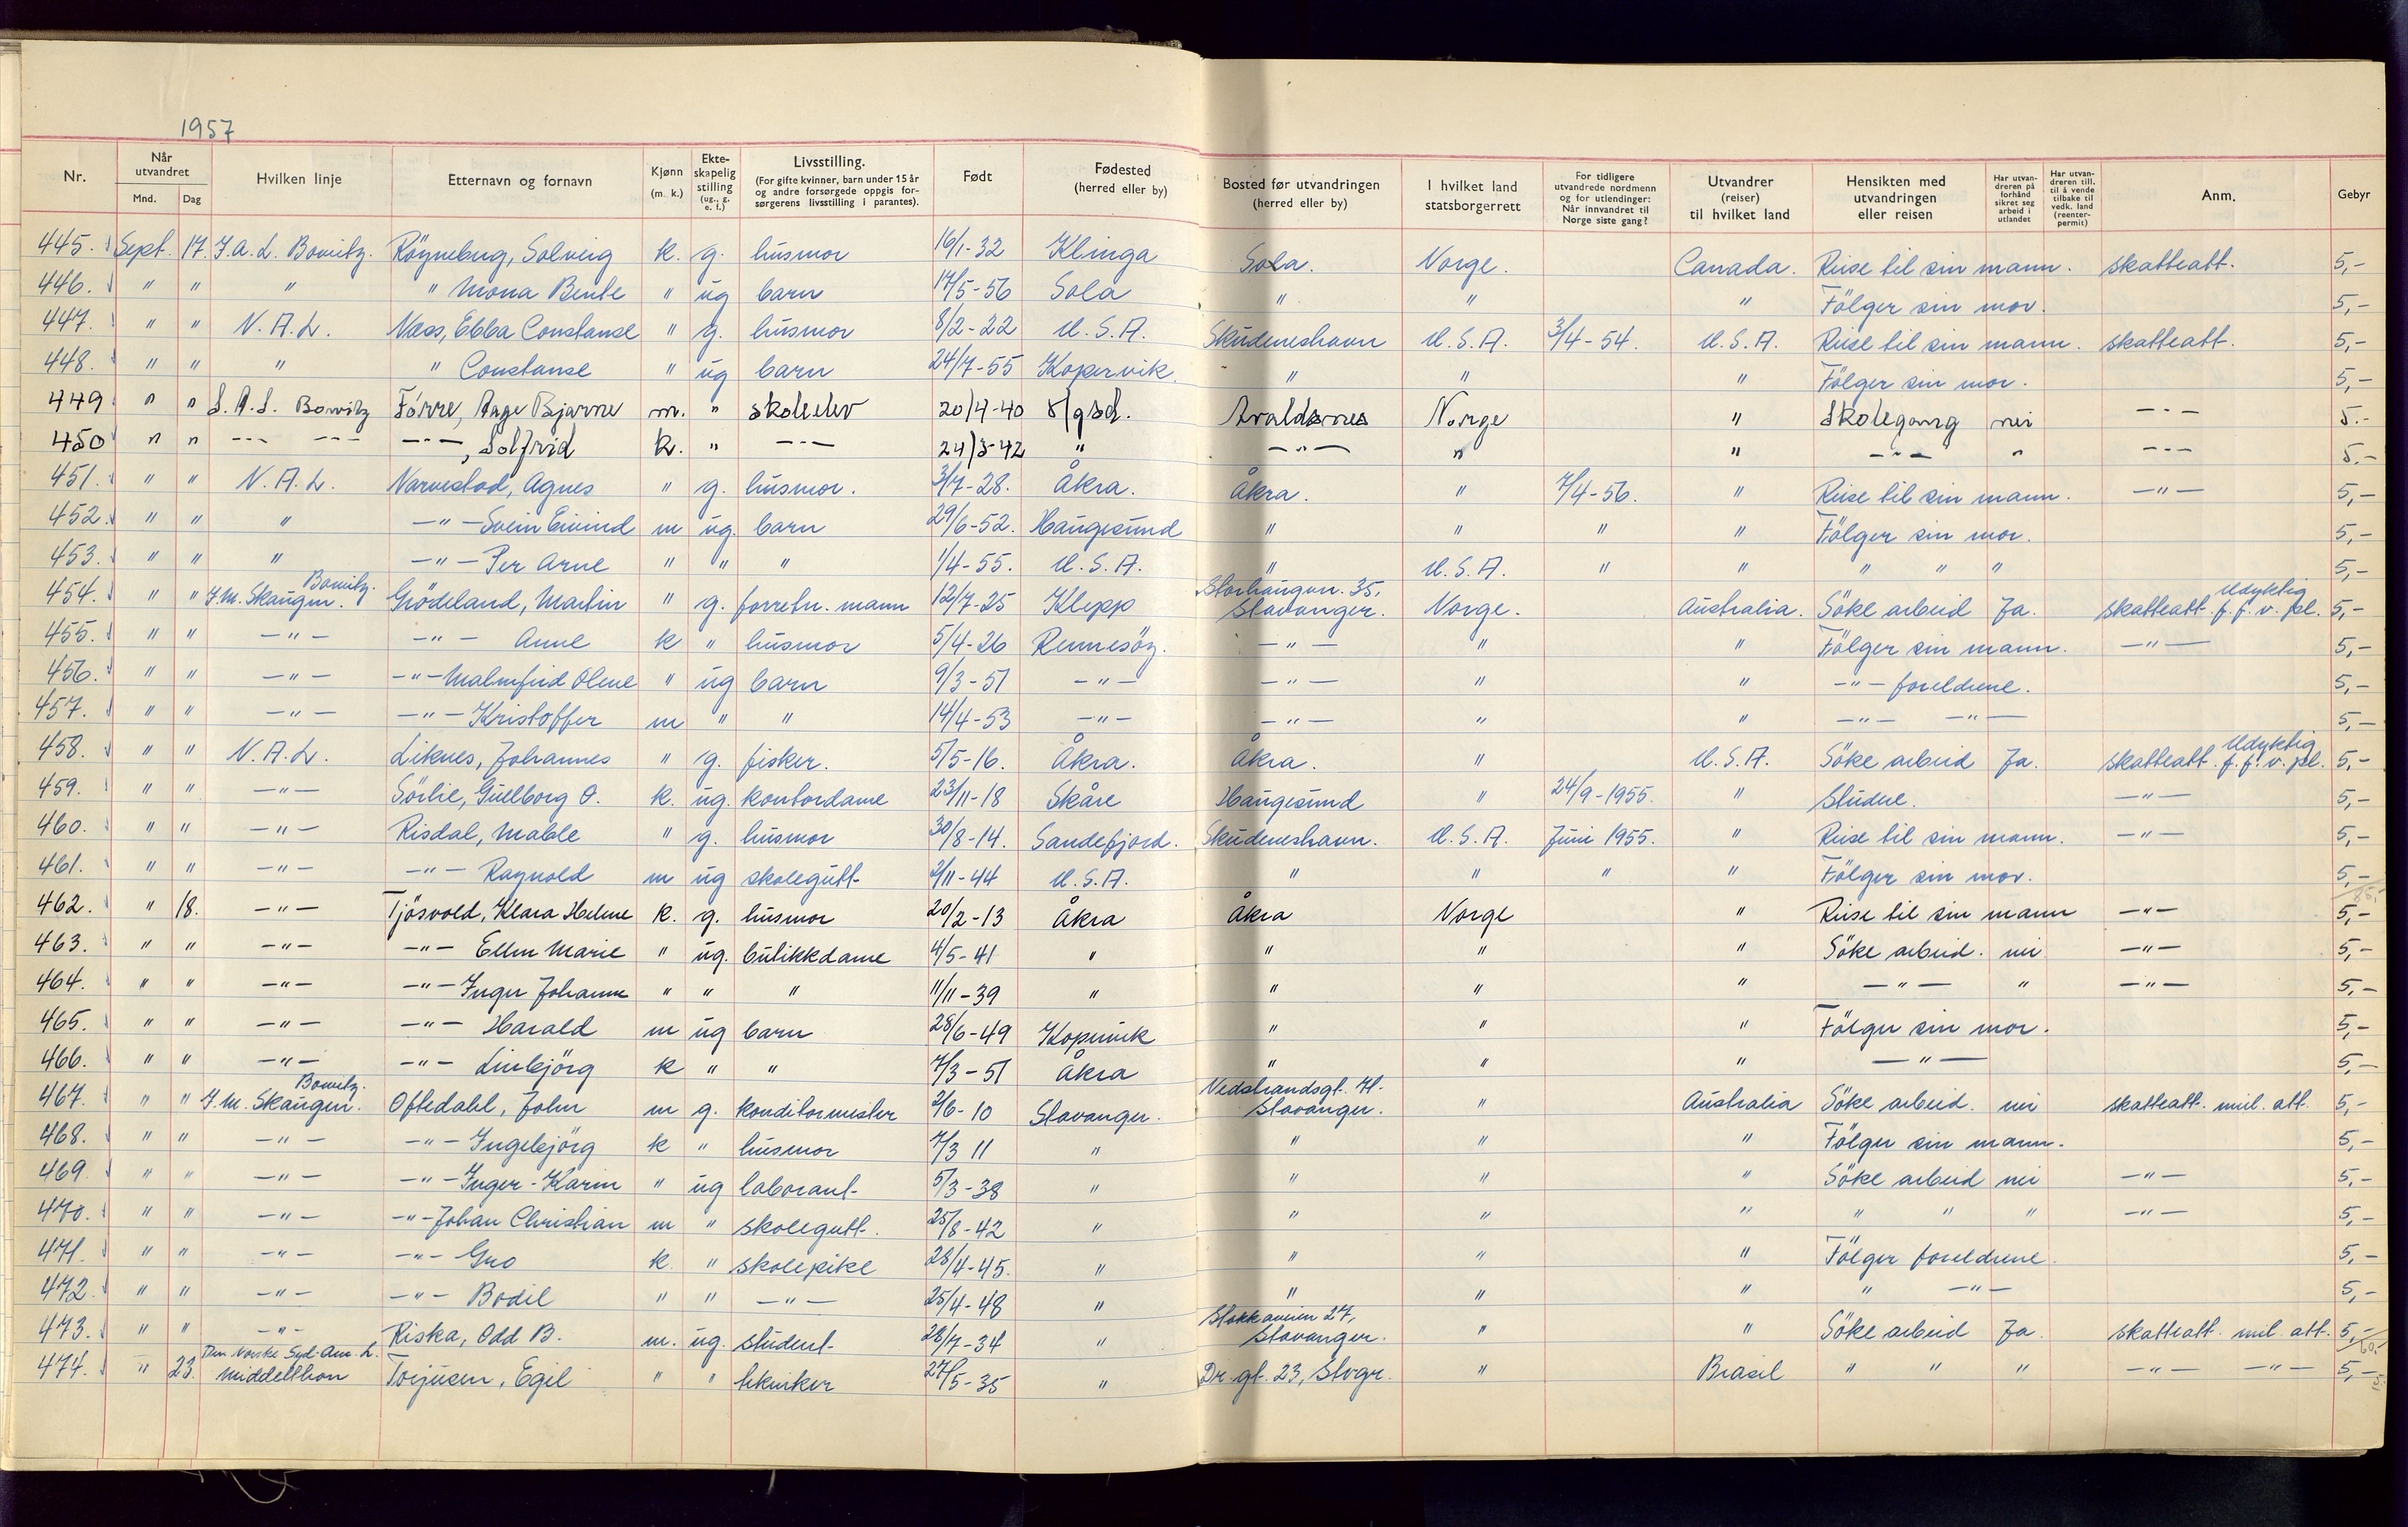 1957
Nr. Når utvandret Mnd. Dag Hvilken linje Etternavn og fornavn Kjønn (m. k.) Ekteskapelig stilling (ug., g. e. f.) Livsstilling. (For gifte kvinner, barn under 15 år og andre forsørgede oppgis forsørgerens livsstilling i parantes). Født Fødested (herred eller by) Bosted før utvandringen (herred eller by) I hvilket land statsborgerrett For tidligere utvandrede nordmenn og for utlendinger: Når innvandret til Norge siste gang? Utvandrer (reiser) til hvilket land Hensikten med utvandringen eller reisen Har utvandreren på forhånd sikret seg arbeid i utlandet Har utvandreren till. til å vende tilbake til vedk. land (reenterpermit) Anm. Gebyr
445. Sept. 17. Röyneberg, Solveig k. g. husmor 16/1-32 Klinga Sola. Norge. Canada. Reise til sin mann. skatteatt. 5,-
446. " " " " Mona Bente " ug barn 17/5-56 Sola " " " Fölger sin mor. 5,-
447. " " N.A.L. Næss, Ebba Constanse " g. husmor 8/2-22 U.S.A. Skudeneshavn U.S.A. 3/4-54. U.S.A. Reise til sin mann. skatteatt. 5,-
448. " " " " Constanse " ug barn 24/7-55 Kopervik " " " Fölger sin mor. 5,-
449 " " Förre, Aage Bjarne m. " skoleelev 20/4-40 Avaldsnes Norge " Skolegang nei -"- 5.-
450 " " -"- -"- -"-, Solfrid k. " -"- 24/3-42 " -"- " " -"- " -"- 5.-
451. " " N.A.L. Narvestad, Agnes " g. husmor. 3/7-28. Åkra. Åkra. " 7/4-56. " Reise til sin mann. -"- 5,-
452. " " " -"- Svein Eivind m ug. barn 29/6-52. Haugesund " " " " Fölger sin mor. 5,-
453. " " " -"- Per Arne " " " 1/4-55. U.S.A. " U.S.A. " " " " " 5,-
454. " " I.M. Skaugen. Grödeland, Martin " g. forretn. mann 12/7-25 Klepp Storhaugvn. 35, Stavanger. Norge. Australia. Söke arbeid Ja. skatteatt. Udyktig f. f. v. pl. 5,-
455. " " -"- -"- Anne k " husmor 5/4-26 Rennesöy. -"- " " Fölger sin mann. -"- 5,-
456. " " -"- -"- Malmfrid Olene " ug barn 9/3-51 -"- -"- " " -"- foreldrene. 5,-
457. " " -"- -"- Kristoffer m " " 14/4-53 -"- -"- " " -"- -"- 5,-
458. " " N.A.L. Liknes, Johannes " g. fisker. 5/5-16. Åkra. Åkra. " U.S.A. Söke arbeid Ja. skatteatt. Udyktig f. f. v. pl. 5,-
459. " " -"- Sörlie, Gullborg O. k. ug. kontordame 23/11-18 Skåre Haugesund " 24/9-1955. " studere. -"- 5,-
460. " " -"- Risdal, Mable " g. husmor 30/8-14. Sandefjord. Skudeneshavn. U.S.A. Juni 1955. " Reise til sin mann. -"- 5,-
461. " " -"- -"- Ragnold m ug skolegutt 2/11-44 U.S.A. " " " " Fölger sin mor. 5,-
85,-
462. " 18. -"- Tjösvold, Klara Helene k. g. husmor 20/2-13 Åkra Åkra Norge " Reise til sin mann -"- 5,-
463. " " -"- -"- Ellen Marie " ug. butikkdame 4/5-41 " " " " Söke arbeid. nei -"- 5,-
464. " " -"- -"- Inger Johanne " " " 11/11-39 " " " " -"- " -"- 5,-
465. " " -"- -"- Harald m ug barn 28/6-49 Kopervik " " " Fölger sin mor. 5,-
466. " " -"- -"- Linbjörg k " " 7/3-51 Åkra " " " -"- 5,-
467. " " I.M. Skaugen. Oftedahl, John m g. konditormester 2/6-10 Stavanger. Vedstrandsgt. 71. Stavanger. " Australia Söke arbeid. nei skatteatt. mil. att. 5,-
468. " " -"- -"- Ingebjörg k " husmor 7/3 11 " " " " Fölger sin mann. 5,-
469 " " -"- -"- Inger-Karin " ug laborant 5/3-38 " " " " Söke arbeid nei -"- 5,-
470. " " -"- -"- Johan Christian m " skolegutt. 25/8-42 " " " " " " " -"- 5,-
471. " " -"- -"- Gro k " skolepike 28/4-45. " " " " Fölger foreldrene. 5,-
472. " " -"- -"- Bodil " " -"- 25/4-48 " " " " " -"- 5,-
473. " " -"- Riska, Odd B. m. ug. student 28/7-34 " Stokkaveien 27, Stavanger. " " Söke arbeid Ja. skatteatt. mil. att. 5,-
60,-
474. " 23. Den Norske Syd-Am. L. Middelthon Torjusen, Egil " " tekniker 27/5-35 " Dr. gt. 23, Stvgr. " Brasil " " " -"- -"- 5,-